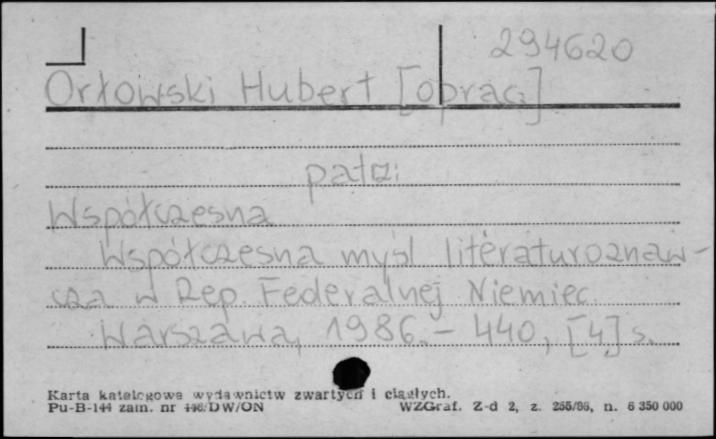 294620
Orłowski Hubert [oprac.]
patrz:
Współczesna
Współczesna myśl literaturoznaw-
cza w Rep. Federalnej Niemiec.
Warszawa, 1986. - 440, [4] s.
Karta katalogowa wydawnictw zwartych i ciągłych.
Pu-B-144 zam. nr 446/DW/ON WZGraf. Z-d 2, z. 255/86, n. 6 350 000